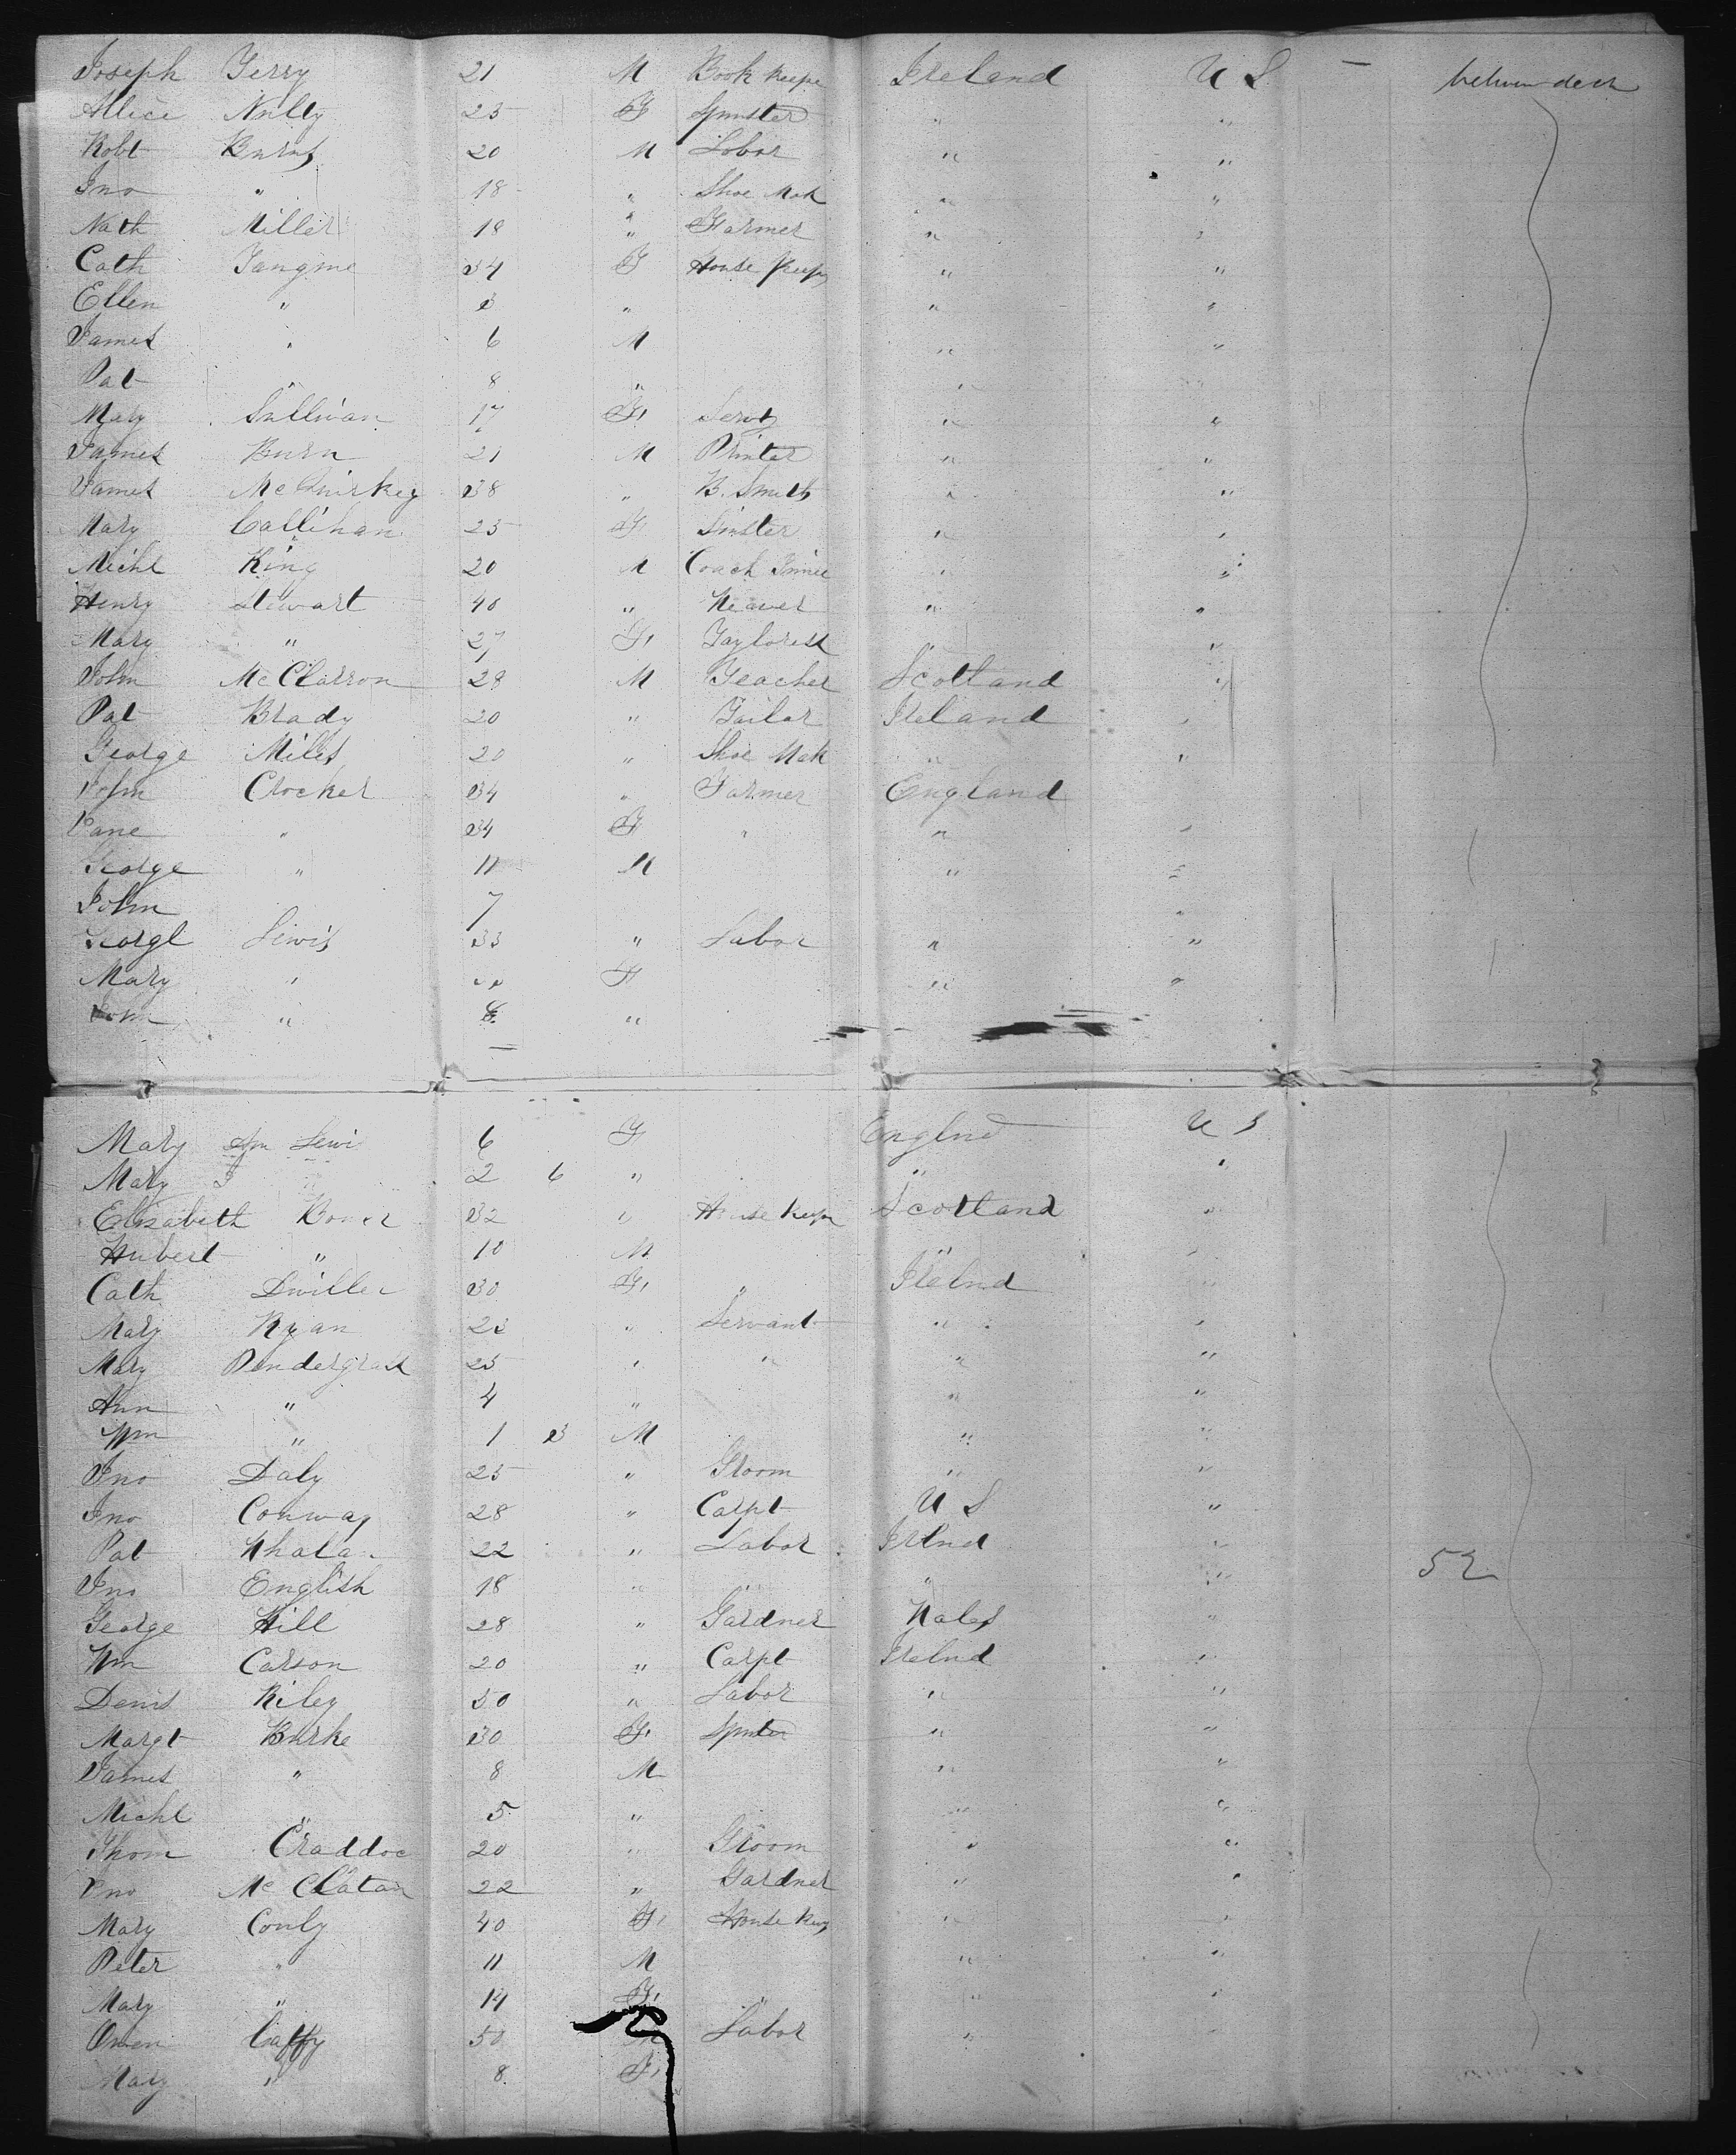 Joseph Terry 21 M Book Keepe Ireland U S — between deck
Allice Nulty 25 F Spinster " "
Robt Burns 20 M Labor " "
Jno " 18 " Shoe Mak " "
Nath Miller 18 " Farmer " "
Cath 34 F House Keep " "
Ellen " 3 " " "
James " 6 M " "
Pat " 8 " " "
Mary Sullivan 17 F Servt " "
James Burn 21 M Printer " "
James McGuirkey 38 " B. Smith " "
Mary Callihan 25 F Sinster " "
Michl King 20 M Coach " "
Henry Stewart 40 " Weaver " "
Mary " 27 F Taylorest "
John McClarron 28 M Teacher Scotland "
Pat Brady 20 " Tailor Ireland "
George Miles 20 " Shoe Mak " "
John Crocker 34 " Farmer England
Jane " 34 F " " "
George " 11 M " "
John 7 "
George Lewis 33 " Labor " "
Mary " F " "
John " 8 "
Mary Ann Lewi 6 F Englnd U S
Mary J 2 6 " " "
Elizabeth 32 " House Keepr Scotland "
Hubert " 10 M " "
Cath Dwiller 30 F " Irelnd "
Mary Ryan 23 " Servant " "
Mary Pendergrast 25 " " " "
Ann " 4 " " "
Wm " 1 3 M " "
Jno Daly 25 " Groom " "
Jno Conway 28 " Carpt U S "
Pat Whala 22 " Labor Irlnd "
Jno English 18 " " " " 52
George Hill 28 " Gardner Wales "
Wm Carson 20 " Carpt Irelnd "
Denis Riley 50 " Labor " "
Margt Burke 30 F Spinster " "
James " 8 M " "
Michl " 5 " " "
Thom Craddoc 20 " Groom " "
Jno McClatan 22 " Gardner " "
Mary Conly 40 F House Keep " "
Peter " 11 M " "
Mary " 14 F " "
Owen Caffy 50 M Labor " "
Mary " 8 F